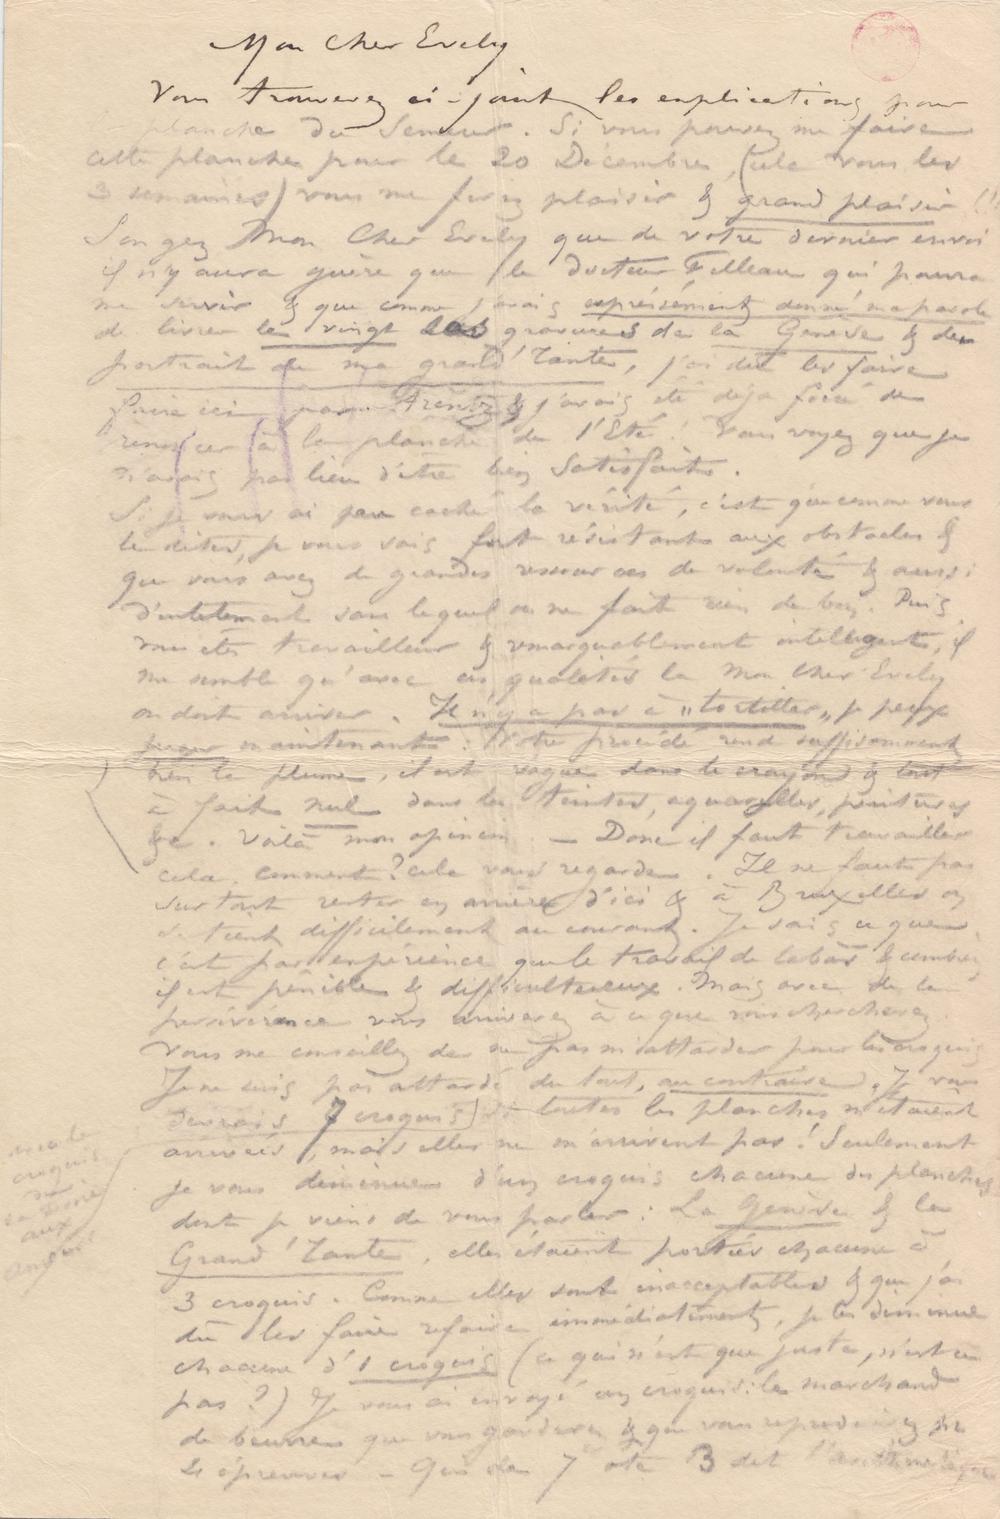 Mon Cher Evely
Vous trouverez ci-joint les explications pour
planche du Semeur. Si vous pouvez me faire
cette planche pour le 20 Décembre, (cela vous les
3 semaines) vous me ferez plaisir & grand plaisir
Songez Mon Cher Evely que de votre dernier envoi
il n'y aura guère que le docteur Filleau qui pourra
me servir & que comme j'avais expressément donné ma parole
de livrer le vingt les gravures de la Genèse & du
portrait de ma grand'Tante, j'ai dû les faire
faire ici par Arentz & j'avais été déjà forcé de
renoncer à la planche de l'Eté! Vous voyez que je
n'avais pas lieu d'être bien Satisfait.
Si je vous ai peu caché la vérité, c'est que comme vous
le dites, je vous sais fort résistant aux obstacles &
que vous avez de grandes ressources de volonté & aussi
d'entêtement sans lequel on ne fait rien de bon. Puis
vous êtes travailleur & remarquablement intelligent, il
me semble qu'avec ces qualités là Mon Cher Evely
on doit arriver. Il n'y a pas à "tortiller" je peux
juger maintenant: Votre procédé rend suffisamment
bien la plume, il est vague dans le crayon & tout
à fait nul dans les teintes, aquarelles, peintures
&c. Voilà mon opinion — Donc il faut travailler
cela. Comment? cela vous regarde. Il ne faut pas
surtout rester en arrière d'ici & à Bruxelles on
se tient difficilement au courant. Je sais ce que
c'est par expérience que le travail de là-bas & combien
il est pénible & difficultueux. Mais avec de la
persévérance vous arriverez à ce que vous cherchez.
Vous me conseillez de ne pas m'attarder pour les croquis
Je ne suis pas attardé du tout, au contraire. Je vous
devrais 7 croquis) si toutes les planches m'étaient
arrivées, mais elles ne m'arrivent pas! Seulement
je vous diminue d'un croquis chacune des planches
dont je viens de vous parler: La Genèse & la
Grand'Tante, elles étaient portées chacune à
3 croquis. Comme elles sont inacceptables & que j'ai
dû les faire refaire immédiatement, je les diminue
chacune d'1 croquis (ce qui n'est que juste, n'est ce
pas?) Je vous ai envoyé un croquis: le marchand
de beurre que vous garderez & que vous reproduirez
4 épreuves – Qui de 7 ôte 3 dit l'arithmétique
croquis
aux